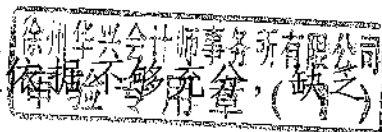 徐州华兴会计师事务所有限公司
依据不够充分，缺乏
验专用章（1）